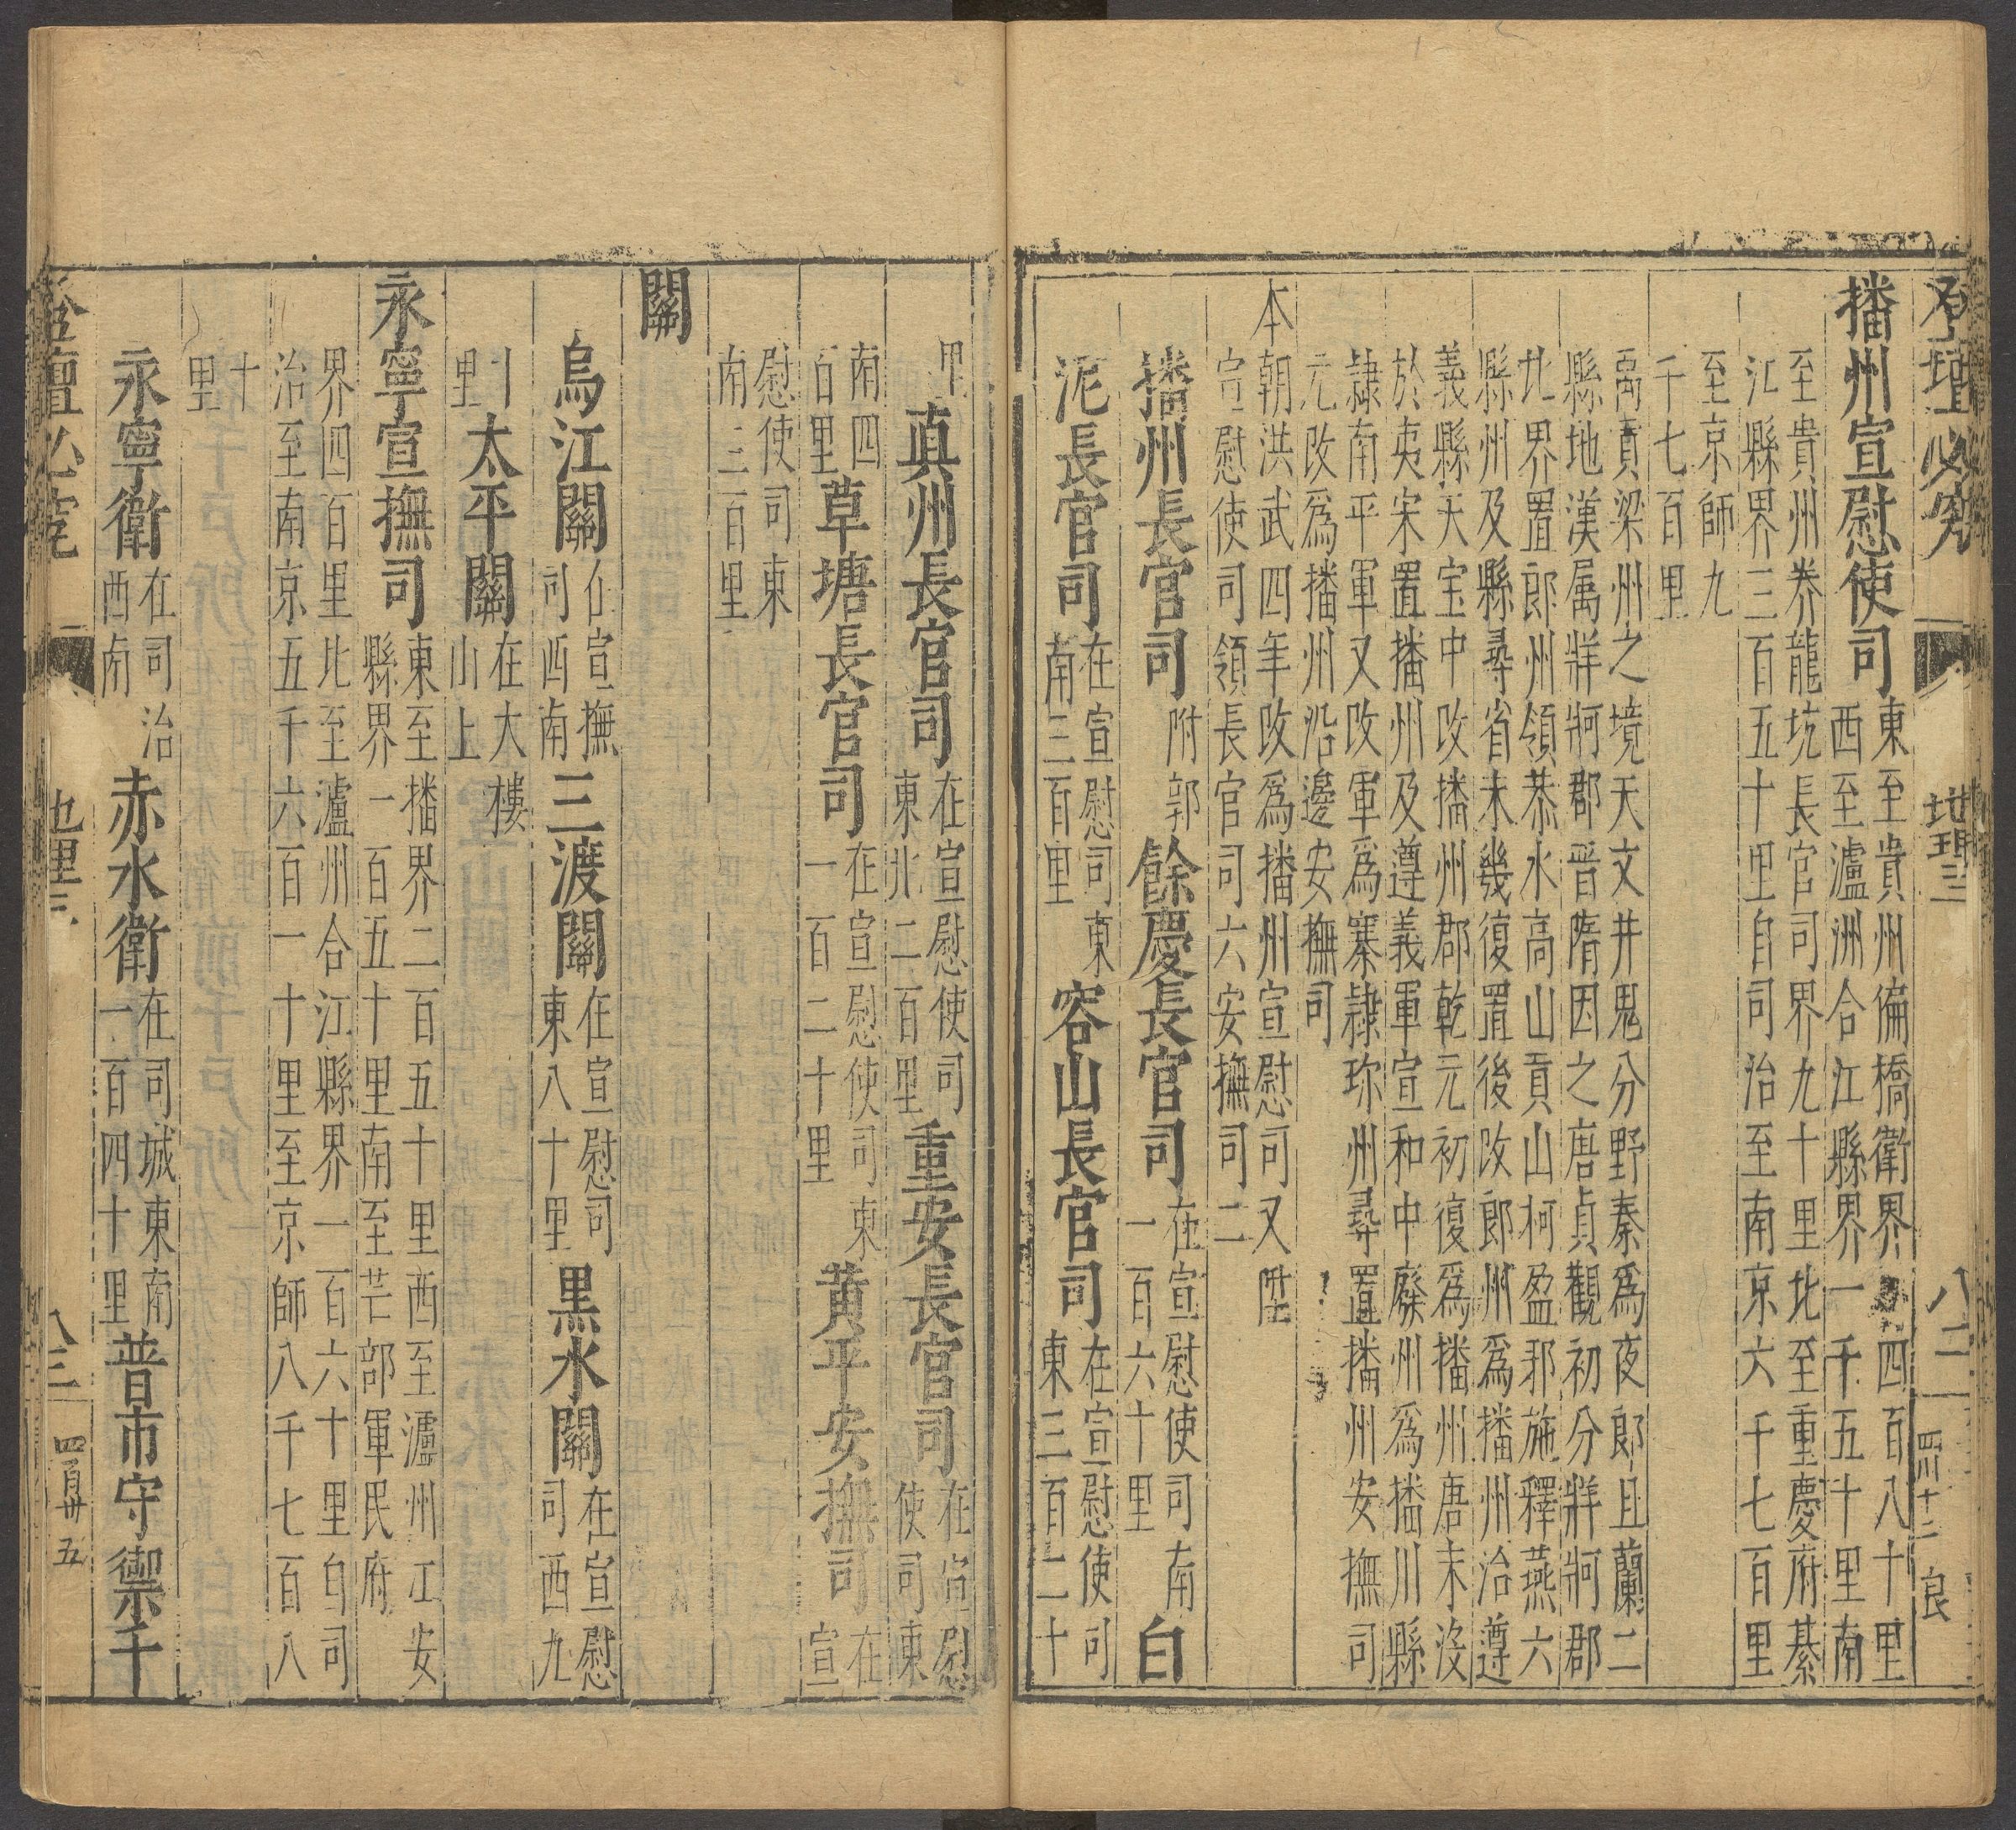 登壇必究 地理三 八二 四川十二 良
播州宣慰使司 東至貴州偏橋衛界四百八十里
西至瀘洲合江縣界一千五十里南
至貴州养龍坑長官司界九十里北至重慶府綦
江縣界三百五十里自司治至南京六千七百里
至京師九
千七百里
禹貢梁州之境天文井鬼分野秦爲夜郎且蘭二
縣地漢属牂牁郡晋隋因之唐貞觀初分牂牁郡
北界置郎州領恭水高山貢山柯盈邪施釋燕六
縣州及縣尋省未幾復置後改郎州爲播州治遵
義縣天宝中改播州郡乾元初復爲播州唐末没
於夷宋置播州及遵義軍宣和中廢州爲播川縣
隷南平軍又改軍爲寨隷珍州尋置播州安撫司
元改爲播州沿邊安撫司
本朝洪武四年改爲播州宣慰司又陞
宣慰使司領長官司六安撫司二
播州長官司 附郭 餘慶長官司 在宣慰使司南一百六十里 白
泥長官司 在宣慰司東南三百里 容山長官司 在宣慰使司東三百二十
里 真州長官司 在宣慰使司東北二百里 重安長官司 在宣慰使司東
南四百里 草塘長官司 在宣慰使司東一百二十里 黄平安撫司 在宣
慰使司東
南三百里
關
烏江關 在宣撫司西南 三渡關 在宣慰司東八十里 黑水關 在宣慰司西九
十里 太平關 在大樓山上
永寧宣撫司 東至播界二百五十里西至瀘州江安
縣界一百五十里南至芒部軍民府
界四百里北至瀘州合江縣界一百六十里自司
治至南京五千六百一十里至京師八千七百八
十
里
永寧衛 在司治西南 赤水衛 在司城東南一百四十里 普市守禦千
登壇必究 地理三 八三 四百卅五